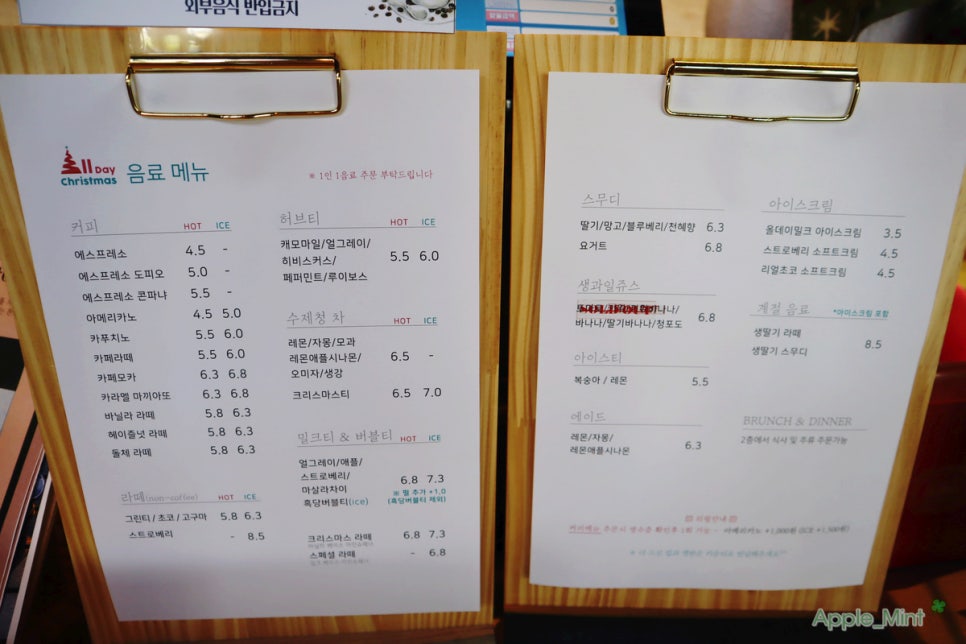 외부음식 반입금지
All Day Christmas 음료 메뉴
※ 1인 1음료 주문 부탁드립니다
커피 HOT ICE
에스프레소 4.5 -
에스프레소 도피오 5.0 -
에스프레소 콘파냐 5.5 -
아메리카노 4.5 5.0
카푸치노 5.5 6.0
카페라떼 5.5 6.0
카페모카 6.3 6.8
카라멜 마끼아또 6.3 6.8
바닐라 라떼 5.8 6.3
헤이즐넛 라떼 5.8 6.3
돌체 라떼 5.8 6.3
라떼(non-coffee) HOT ICE
그린티 / 초코 / 고구마 5.8 6.3
스트로베리 - 8.5
허브티 HOT ICE
캐모마일/얼그레이/
히비스커스/ 5.5 6.0
페퍼민트/루이보스
수제청 차 HOT ICE
레몬/자몽/모과
레몬애플시나몬/ 6.5 -
오미자/생강
크리스마스티 6.5 7.0
밀크티 & 버블티 HOT ICE
얼그레이/애플/
스트로베리/ 6.8 7.3
마살라차이 ※ 펄 추가 +1.0
흑당버블티(ice) (흑당버블티 제외)
크리스마스 라떼 6.8 7.3
스페셜 라떼 - 6.8
스무디
딸기/망고/블루베리/천혜향 6.3
요거트 6.8
생과일쥬스
바나나/
바나나/딸기바나나/청포도 6.8
아이스티
복숭아 / 레몬 5.5
에이드
레몬/자몽/ 6.3
레몬애플시나몬
아이스크림
올데이밀크 아이스크림 3.5
스트로베리 소프트크림 4.5
리얼초코 소프트크림 4.5
계절 음료 *아이스크림 포함
생딸기 라떼 8.5
생딸기 스무디
BRUNCH & DINNER
2층에서 식사 및 주류 주문가능
리필안내
커피메뉴 주문시 영수증 확인후 1회 가능 - 아메리카노 +1,000원 (ICE +1,500원)
Apple_Mint